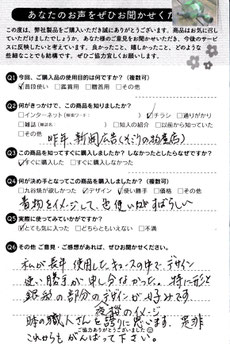 あなたのお声をぜひお聞かせくだ
この度は、弊社製品をご購入いただき誠にありがとうございます。商品はお気に召して
いただけましたでしょうか。あなた様のご意見をお聞かせいただき、今後のサービス
に反映したいと考えています。良かったこと、嬉しかったこと、どのような
些細なことでも結構です。ぜひご協力宜しくお願いします。
Q1 今回、ご購入品の使用目的は何ですか？（複数可）
☑普段使い □鑑賞用 □贈答用 □その他
Q2 何がきっかけで、この商品を知りましたか？
□インターネット □チラシ 通りがかり
□雑誌 □知人の紹介 □以前から知っていた
□その他
昨年、新聞広告
Q3 この商品を知ってすぐに購入しましたか？しなかったとしたらなぜですか？
☑すぐに購入した □すぐに購入しなかった
Q4 何が決め手となってこの商品を購入しましたか？（複数可）
□九谷焼が欲しかった ☑デザイン ☑使い勝手 □価格 □その他
着物をイメージして、色使いがすばらしい
Q5 実際に使ってみていかがですか？
☑とても気に入った □どちらともいえない □不満
Q6 その他 ご意見・ご感想があれば、ぜひお聞かせください。
私が長年 使用した 中で、デザイン
使い勝手が申し分なかった。特に形と
銀彩の部分のデザインが好みです
夜桜のイメージ
職人さんを誇りに思います。是非
これからもがんばって下さい。
ご協力ありがとうございました